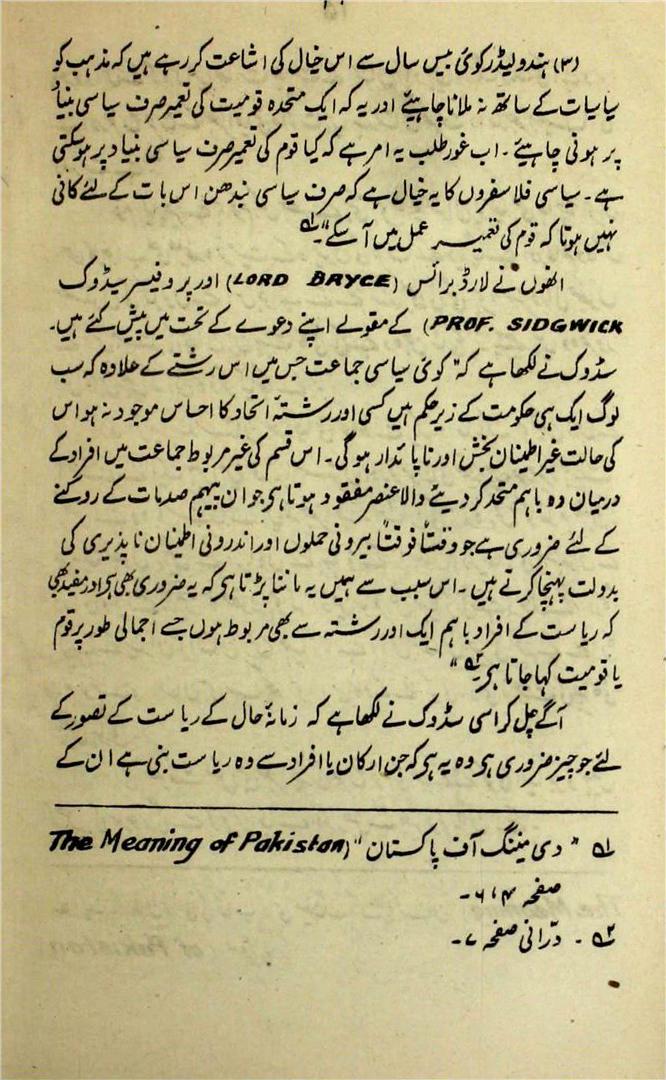 (۳) ہندو لیڈر کوئی بیس سال سے اس خیال کی اشاعت کر رہے ہیں کہ مذہب کو
سیاسیات کے ساتھ نہ ملانا چاہیئے اور یہ کہ ایک متحدہ قومیت کی تعمیر صرف سیاسی بنیاد
پر ہونی چاہیئے۔ اب غور طلب یہ امر ہے کہ کیا قوم کی تعمیر صرف سیاسی بنیاد پر ہو سکتی
ہے۔ سیاسی فلاسفروں کا یہ خیال ہے کہ صرف سیاسی بندھن اس بات کے لئے کافی
نہیں ہوتا کہ قوم کی تعمیر عمل میں آ سکے"۔ ۱ھ
انھوں نے لارڈ برائس (LORD BRYCE) اور پروفیسر سیڈوک
(PROF. SIDGWICK کے مقولے اپنے دعوے کے تحت میں پیش کئے ہیں۔
سڈوک نے لکھا ہے کہ "کوئی سیاسی جماعت جس میں اس رشتے کے علاوہ کہ سب
لوگ ایک ہی حکومت کے زیر حکم ہیں کسی اور رشتۂ اتحاد کا احساس موجود نہ ہو اس
کی حالت غیر اطینان بخش اور ناپائدار ہوگی۔ اس قسم کی غیر مربوط جماعت میں افراد کے
درمیان وہ باہم متحد کر دینے والا عنصر مفقود ہوتا ہی جو ان پیہم صدمات کے روکنے
کے لئے ضروری ہے جو وقتاً فوقتاً بیرونی حملوں اور اندرونی اطینان ناپذیری کی
بدولت پہنچا کرتے ہیں۔ اس سبب سے ہمیں یہ ماننا پڑتا ہی کہ یہ ضروری بھی ہی اور مفید بھی
کہ ریاست کے افراد باہم ایک اور رشتہ سے بھی مربوط ہوں جسے اجمالی طور پر قوم
یا قومیت کہا جاتا ہی۔ ۲ھ"
آگے چل کر اسی سڈوک نے لکھا ہے کہ زمانۂ حال کے ریاست کے تصور کے
لئے جو چیز ضروری ہی وہ یہ ہی کہ جن ارکان یا افراد سے وہ ریاست بنی ہے ان کے
۱ھ "دی میننگ آف پاکستان" (The Meaning of Pakistan
صفحہ ۶،۴۔
۲ھ ۔ درّانی صفحہ ۷۔